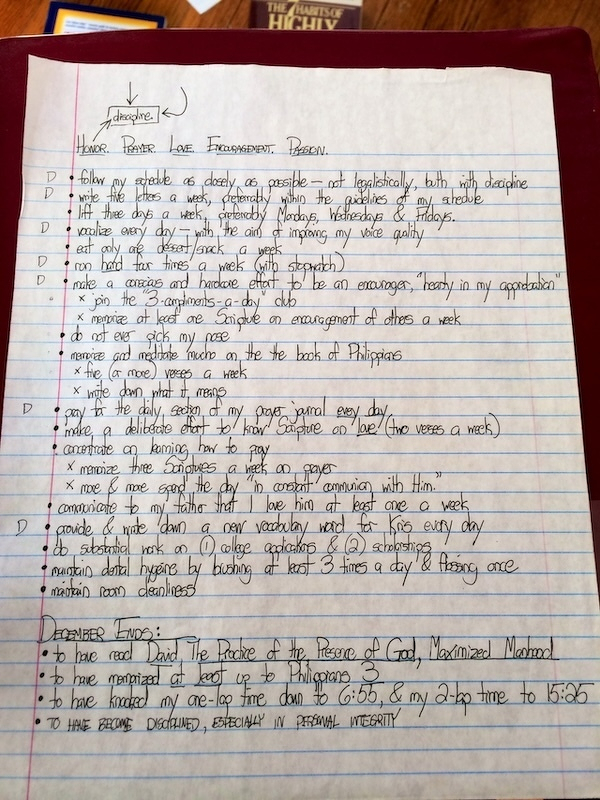 THE 7 HABITS OF
HIGHLY
discipline.
HONOR. PRAYER. LOVE. ENCOURAGEMENT. PASSION.
D • follow my schedule as closely as possible — not legalistically, both with discipline
D • write five letters a week, preferably within the guidelines of my schedule
• lift three days a week, preferably Mondays, Wednesdays & Fridays.
D • vocalize every day — with the aim of improving my voice quality
• eat only one dessert/snack a week
D • run hard four times a week (with stopwatch)
D • make a conscious and hardcore effort to be an encourager, "hearty in my approbation"
x join the "3-compliments-a-day" club
x memorize at least one Scripture on encouragement of others a week
• do not ever pick my nose
• memorize and meditate much on the the book of Philippians
x five (or more) verses a week
x write down what it means
D • pray for the daily section of my prayer journal every day
• make a deliberate effort to know Scripture on love (two verses a week)
• concentrate on learning how to pray
x memorize three Scriptures a week on prayer
x more & more spend the day "in constant communion with Him."
• communicate to my father that I love him at least once a week
D • provide & write down a new vocabulary word for Kris every day
• do substantial work on (1) college applications & (2) scholarships
• maintain dental hygeine by brushing at least 3 times a day & flossing once
• maintain room cleanliness!
DECEMBER ENDS:
• to have read David The Practice of the Presence of God, Maximized Manhood
• to have memorized at least up to Philippians 3
• to have knocked my one-lap time down to 6:55, & my 2-lap time to 15:25
• TO HAVE BECOME DISCIPLINED, ESPECIALLY IN PERSONAL INTEGRITY